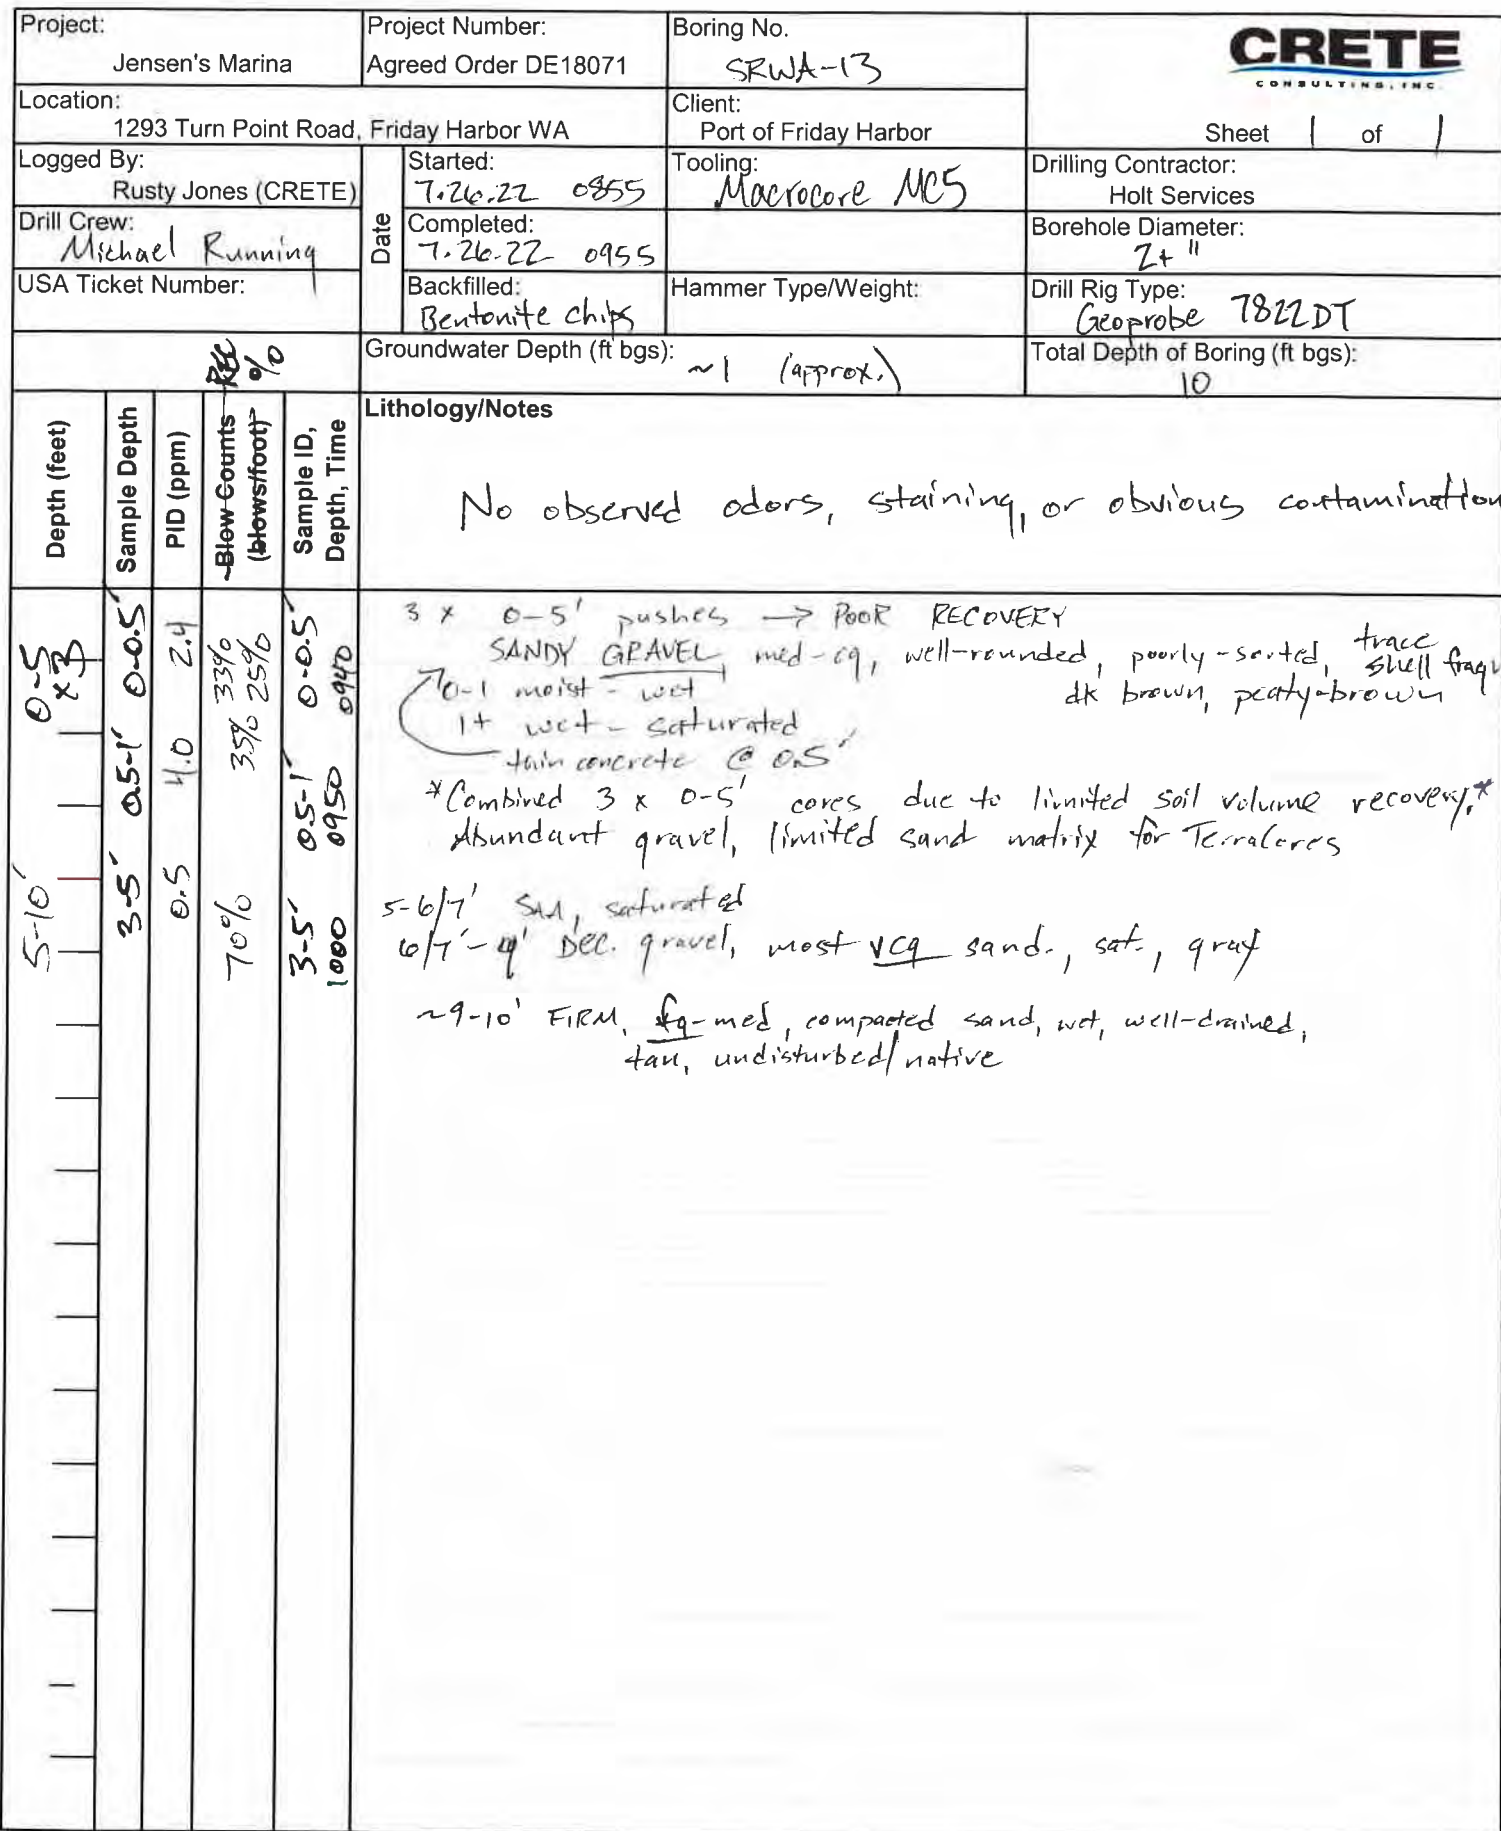 Project:
Jensen's Marina
Project Number:
Agreed Order DE18071
Boring No.
SRWA-13
CRETE
CONSULTING, INC.
Location:
1293 Turn Point Road, Friday Harbor WA
Client:
Port of Friday Harbor
Sheet 1 of 1
Logged By:
Rusty Jones (CRETE)
Date
Started:
7.26.22 0855
Tooling:
Macrocore MC5
Drilling Contractor:
Holt Services
Drill Crew:
Michael Running
Completed:
7.26.22 0955
Borehole Diameter:
2+ "
USA Ticket Number:
Backfilled:
Bentonite chips
Hammer Type/Weight:
Drill Rig Type:
Geoprobe 7822DT
Groundwater Depth (ft bgs): ~1 (approx.)
Total Depth of Boring (ft bgs):
10
REC
%
Depth (feet)
Sample Depth
PID (ppm)
Blow Counts
(blows/foot)
Sample ID,
Depth, Time
Lithology/Notes
No observed odors, staining, or obvious contamination
0-5
x 3
0-0.5'
2.4
33%
35% 25%
0-0.5'
0940
3 x 0-5' pushes -> POOR RECOVERY
SANDY GRAVEL, med-cg, well-rounded, poorly-sorted, trace
shell frags
dk brown, peaty-brown
0-1 moist - wet
1+ wet - saturated
thin concrete @ 0.5'
0.5-1'
4.0
0.5-1'
0950
*Combined 3 x 0-5' cores due to limited soil volume recovery.*
Abundant gravel, limited sand matrix for TerraCores
5-10'
3-5'
0.5
70%
3-5'
1000
5-6/7' SAA, saturated
6/7'-9' Dec. gravel, most vcg sand., sat., gray
~9-10' FIRM, fg-med, compacted sand, wet, well-drained,
tan, undisturbed/native